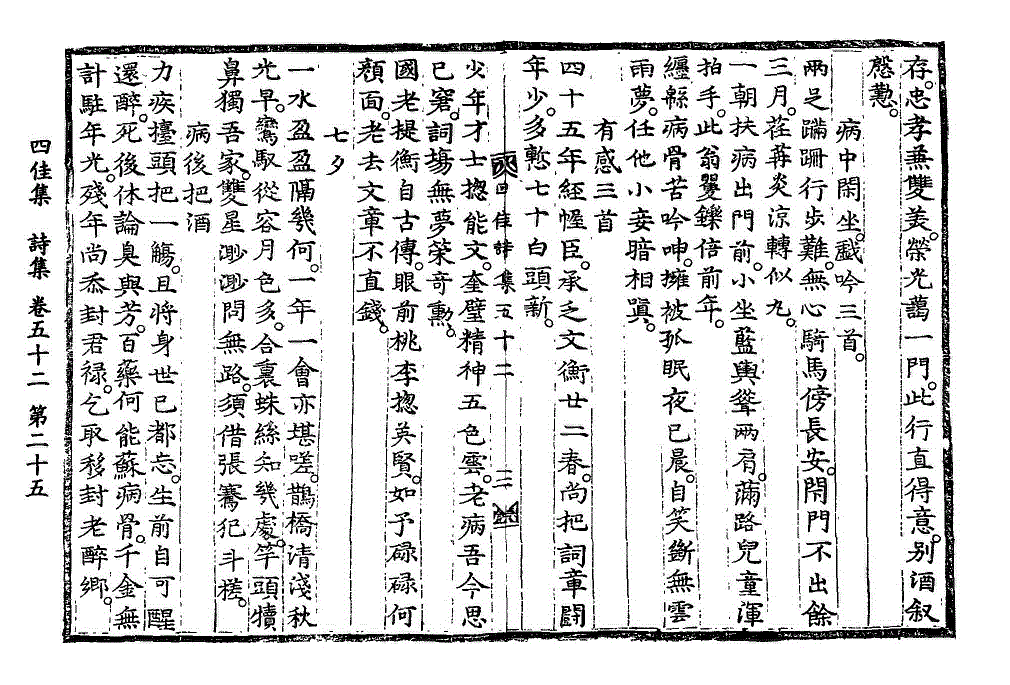 存。忠孝兼雙美。榮光藹一門。此行直得意。別酒叙
慇懃。
病中閑坐。戱吟三首。
兩足蹣跚行步難。無心騎馬傍長安。閉門不出餘
三月。荏苒炎涼轉似丸。
一朝扶病出門前。小坐藍輿聳兩肩。滿路兒童渾
拍手。此翁矍鑠倍前年。
纒緜病骨苦吟呻。擁被孤眠夜已晨。自笑斷無雲
雨夢。任他小妾暗相嗔。
有感三首
四十五年經幄臣。承乏文衡廿二春。尚把詞章鬪
年少。多慙七十白頭新。
四佳詩集五十二 三
少年才士摠能文。奎璧精神五色雲。老病吾今思
已窘。詞塲無夢策奇勳。
國老提衡自古傳。眼前桃李摠英賢。如予碌碌何
顔面。老去文章不直錢。
七夕
一水盈盈隔幾何。一年一會亦堪嗟。鵲橋清淺秋
光早。鸞馭從容月色多。合裏蛛絲知幾處。竿頭犢
鼻獨吾家。雙星渺渺問無路。須借張騫犯斗槎。
病後把酒
力疾擡頭把一觴。且將身世已都忘。生前自可醒
還醉。死後休論臭與芳。百藥何能蘇病骨。千金無
計駐年光。殘年尚忝封君祿。乞取移封老醉鄉。
四佳集 詩集 卷五十二 第二十五